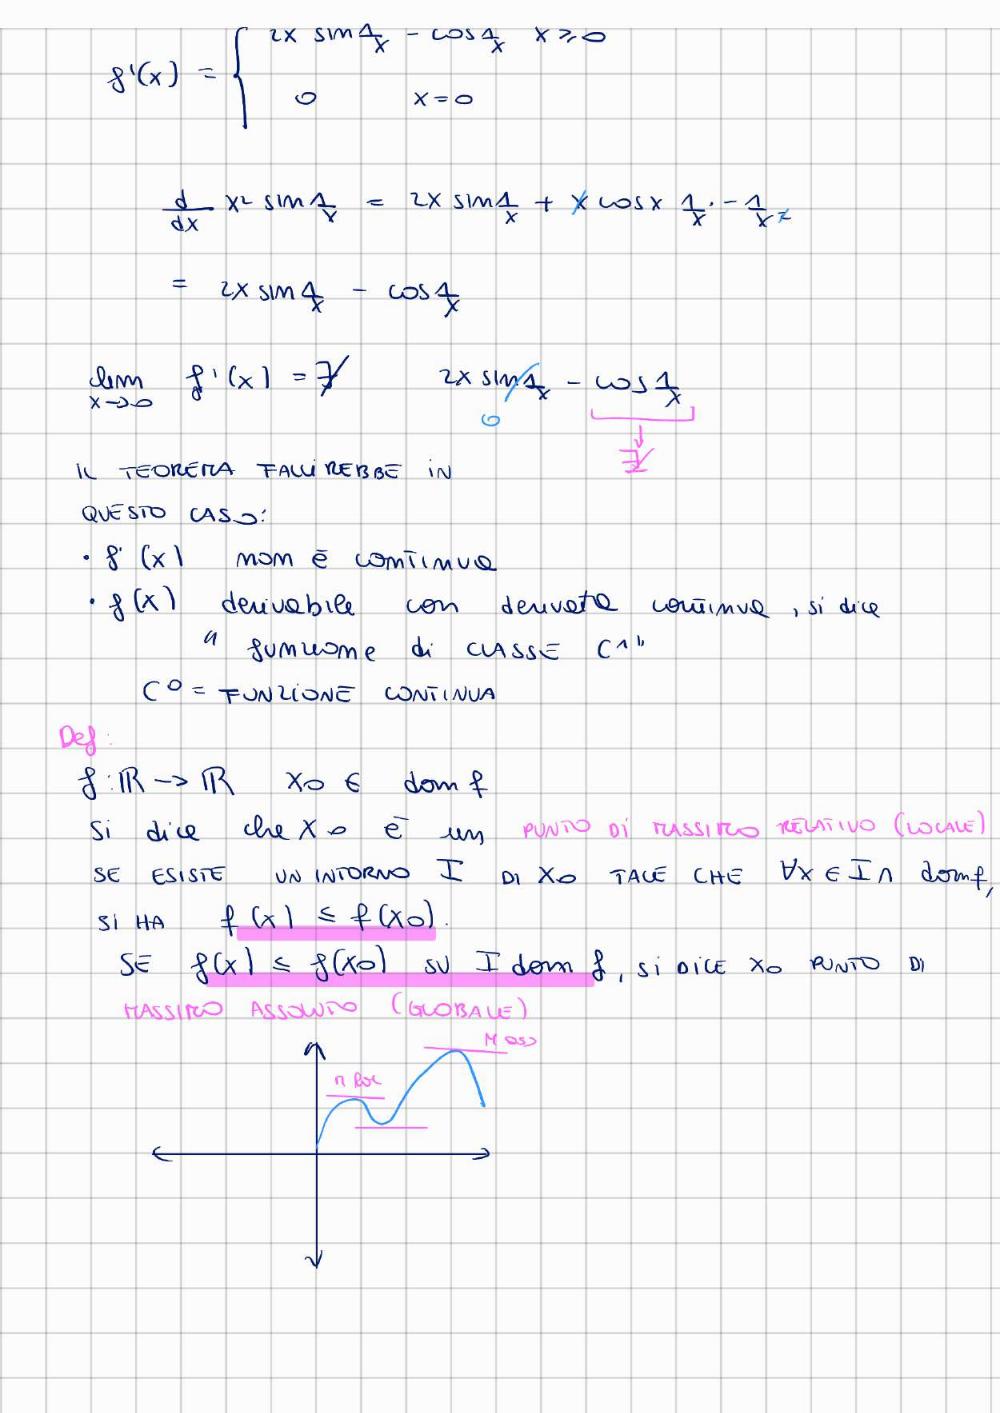 f'(x) = { 2x sin 1/x - cos 1/x   x ≥ 0
0   x = 0
d/dx x² sin 1/x = 2x sin 1/x + x cos x 1/x · - 1/x²
= 2x sin 1/x - cos 1/x
lim x→0 f'(x) = ∄   2x sin 1/x - cos 1/x
0   ∄
IL TEOREMA FALLIREBBE IN
QUESTO CASO:
• f'(x) non è continua
• f(x) derivabile con derivata continua, si dice
" funzione di CLASSE C¹"
C⁰ = FUNZIONE CONTINUA
Def:
f: ℝ -> ℝ   x0 ∈ dom f
Si dice che x0 è un PUNTO DI MASSIMO RELATIVO (LOCALE)
SE ESISTE UN INTORNO I DI X0 TALE CHE ∀x ∈ I ∩ domf,
SI HA f(x) ≤ f(x0).
SE f(x) ≤ f(x0) SU I dom f, SI DICE X0 PUNTO DI
MASSIMO ASSOLUTO (GLOBALE)
M ass
M loc